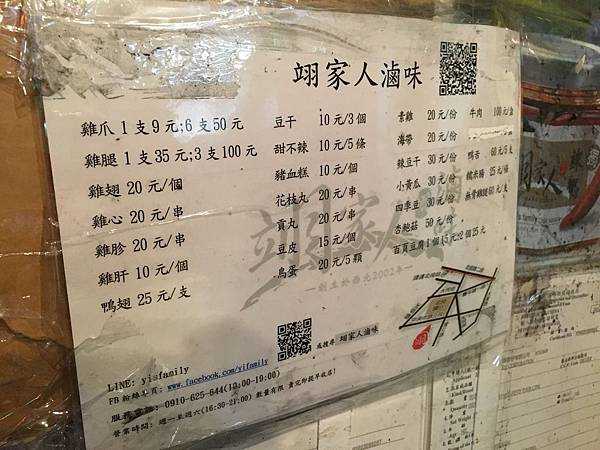 翊家人滷味
雞爪 1支9元;6支50元
雞腿 1支35元;3支100元
雞翅 20元/個
雞心 20元/串
雞胗 20元/串
雞肝 10元/個
鴨翅 25元/支
豆干 10元/3個
甜不辣 10元/5條
豬血糕 10元/個
花枝丸 20元/串
貢丸 20元/串
豆皮 15元/個
鳥蛋 20元/5顆
素雞 20元/份
海帶 20元/份
辣豆干 30元/份
小黃瓜 30元/份
四季豆 30元/份
杏鮑菇 50元/份
百頁豆腐1個15元;2個25元
牛肉 100元/盒
鴨舌 60元/5支
糯米腸 25元/條
無骨雞腿60元/支
翊家人
創立於西元2002年
或搜尋 翊家人滷味
LINE: yiafamily
FB 粉絲專頁: www.facebook.com/yifamily
服務電話: 0910-625-644(10:00-19:00)
營業時間: 週一至週六(16:30-21:00) 數量有限 賣完即提早收店!
翊家人